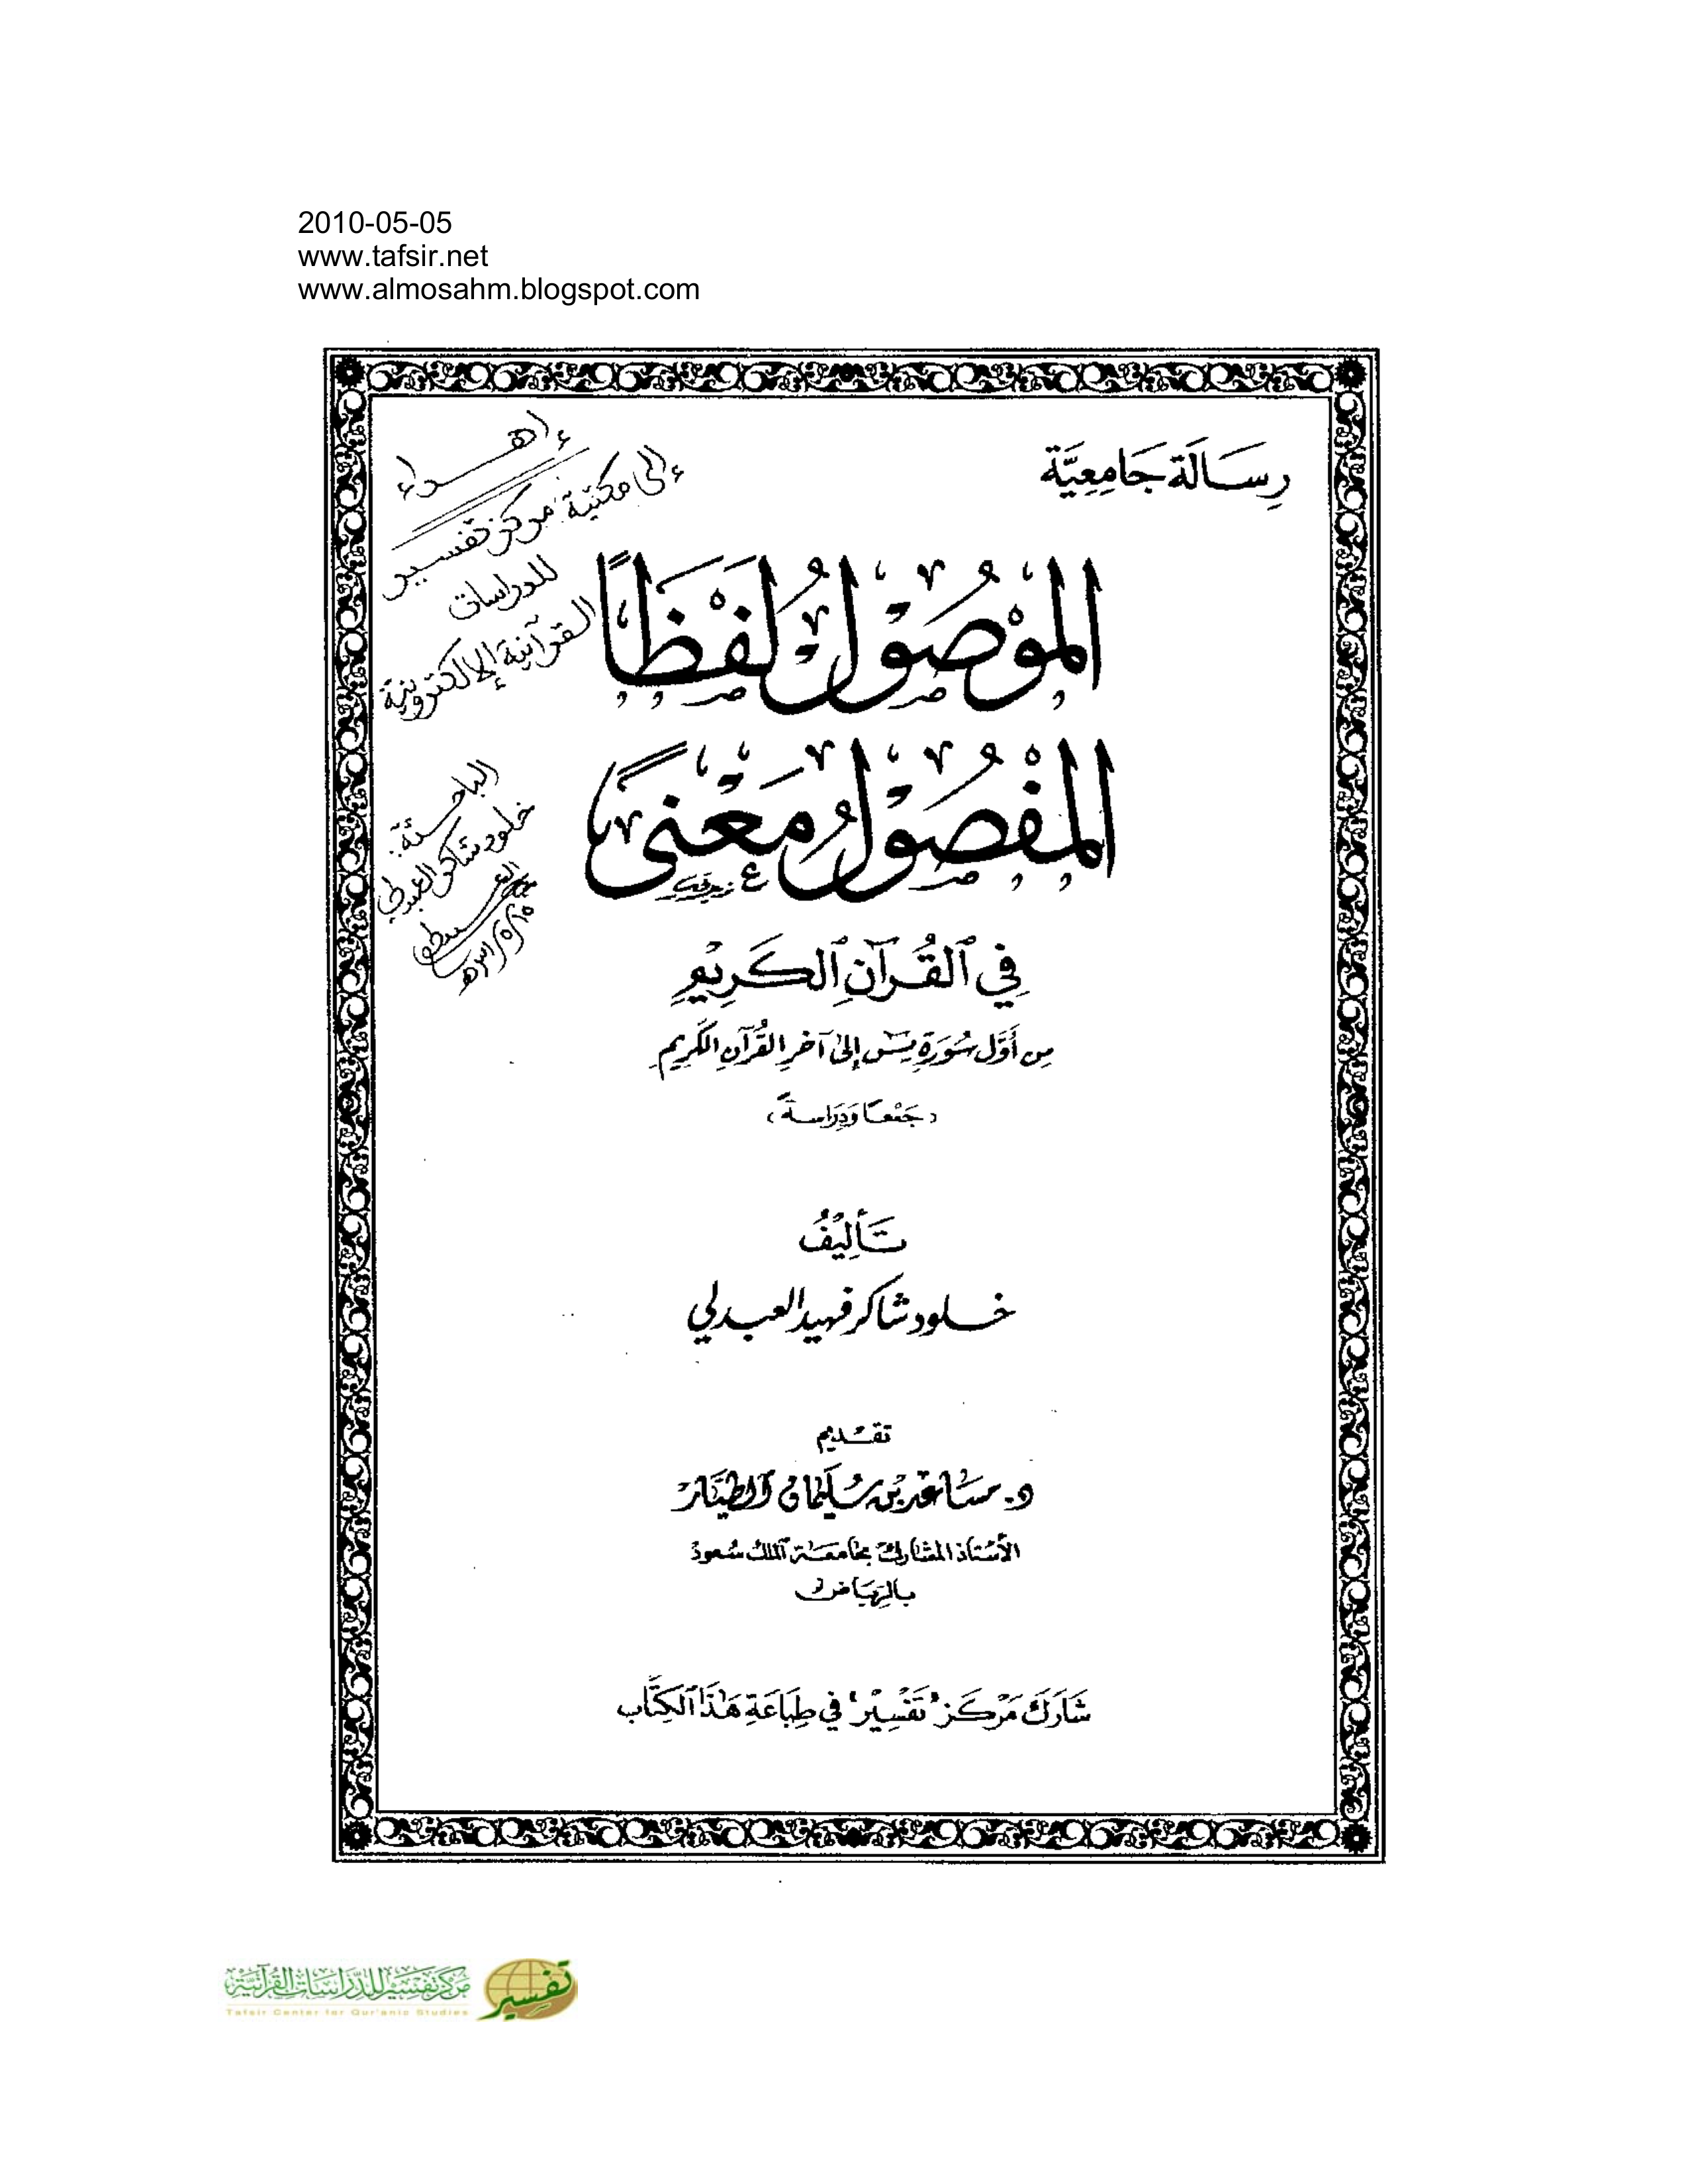 2010-05-05
www.tafsir.net
www.almosahm.blogspot.com
رِسَالَة جَامِعِيَّة
إهداء
إلى مكتبة مركز تفسير
للدراسات
القرآنية الإلكترونية
الباحثة:
خلود شاكر العبدلي
المَوْصُولُ لَفْظًا
المَفْصُولُ مَعْنًى
فِي ٱلْقُرْآنِ ٱلْكَرِيْمِ
مِن أَوَّل سُورَةِ يس إلى آخرِ القُرْآنِ الكَرِيم
(جَمْعًا وَدِرَاسةً)
تَألِيْفُ
خلود شاكر فهيد العبدلي
تقديم
د. مساعد بن سليمان الطيار
الأستاذ المشارك بجامعة الملك سعود
بالرياض
شَارَكَ مَرْكَز "تَفْسِيْر" فِي طِبَاعَةِ هَذَا ٱلْكِتَّاب
مركز تفسير للدراسات القرآنية
تفسير
Tafsir Center for Qur'anic Studies